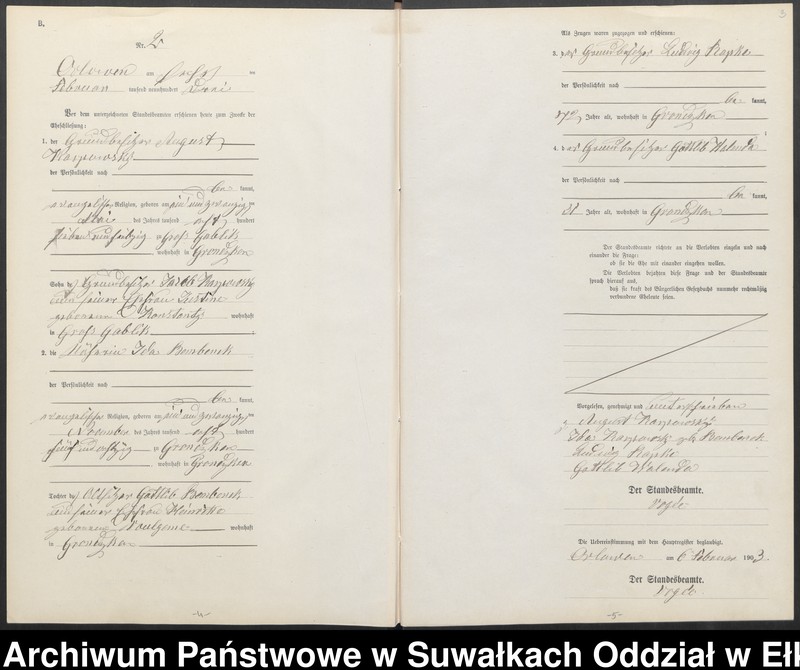 B.
Nr. 2
Orlowen am sechsten
Februar tausend neunhundert drei
Vor dem unterzeichneten Standesbeamten erschienen heute zum Zwecke der
Eheschließung:
1. der Grundbesitzer August
der Persönlichkeit nach
be kannt,
evangelischer Religion, geboren am ein und zwanzigsten
Mai des Jahres tausend acht hundert
sieben und siebzig zu Groß Gablik
, wohnhaft in Grondzken
Sohn des Grundbesitzer Jacob
und seiner Ehefrau Justine
geborenen wohnhaft
in Groß Gablik
2. die Ida Bomboreck
der Persönlichkeit nach
be kannt,
evangelischer Religion, geboren am ein und zwanzigsten
November des Jahres tausend acht hundert
fünf und achtzig zu Grondzken
, wohnhaft in Grondzken
Tochter des Gottlieb
und seiner Ehefrau
geborenen wohnhaft
in Grondzken
-4-
3
Als Zeugen waren zugezogen und erschienen:
3. der Grundbesitzer Ludwig Rapke
der Persönlichkeit nach
be kannt,
Jahre alt, wohnhaft in Grondzken
4. der Grundbesitzer Gottlieb Walenda
der Persönlichkeit nach
be kannt,
Jahre alt, wohnhaft in Grondzken
Der Standesbeamte richtete an die Verlobten einzeln und nach
einander die Frage:
ob sie die Ehe mit einander eingehen wollen.
Die Verlobten bejahten diese Frage und der Standesbeamte
sprach hierauf aus,
daß sie kraft des Bürgerlichen Gesetzbuchs nunmehr rechtmäßig
verbundene Eheleute seien.
Vorgelesen, genehmigt und unterschrieben
August
Ida geb.
Ludwig Rapke
Gottlieb Walenda
Der Standesbeamte.
Die Uebereinstimmung mit dem Hauptregister beglaubigt.
Orlowen am 6 Februar 1903.
Der Standesbeamte.
-5-
Archiwum Państwowe w Suwałkach Oddział w Eł